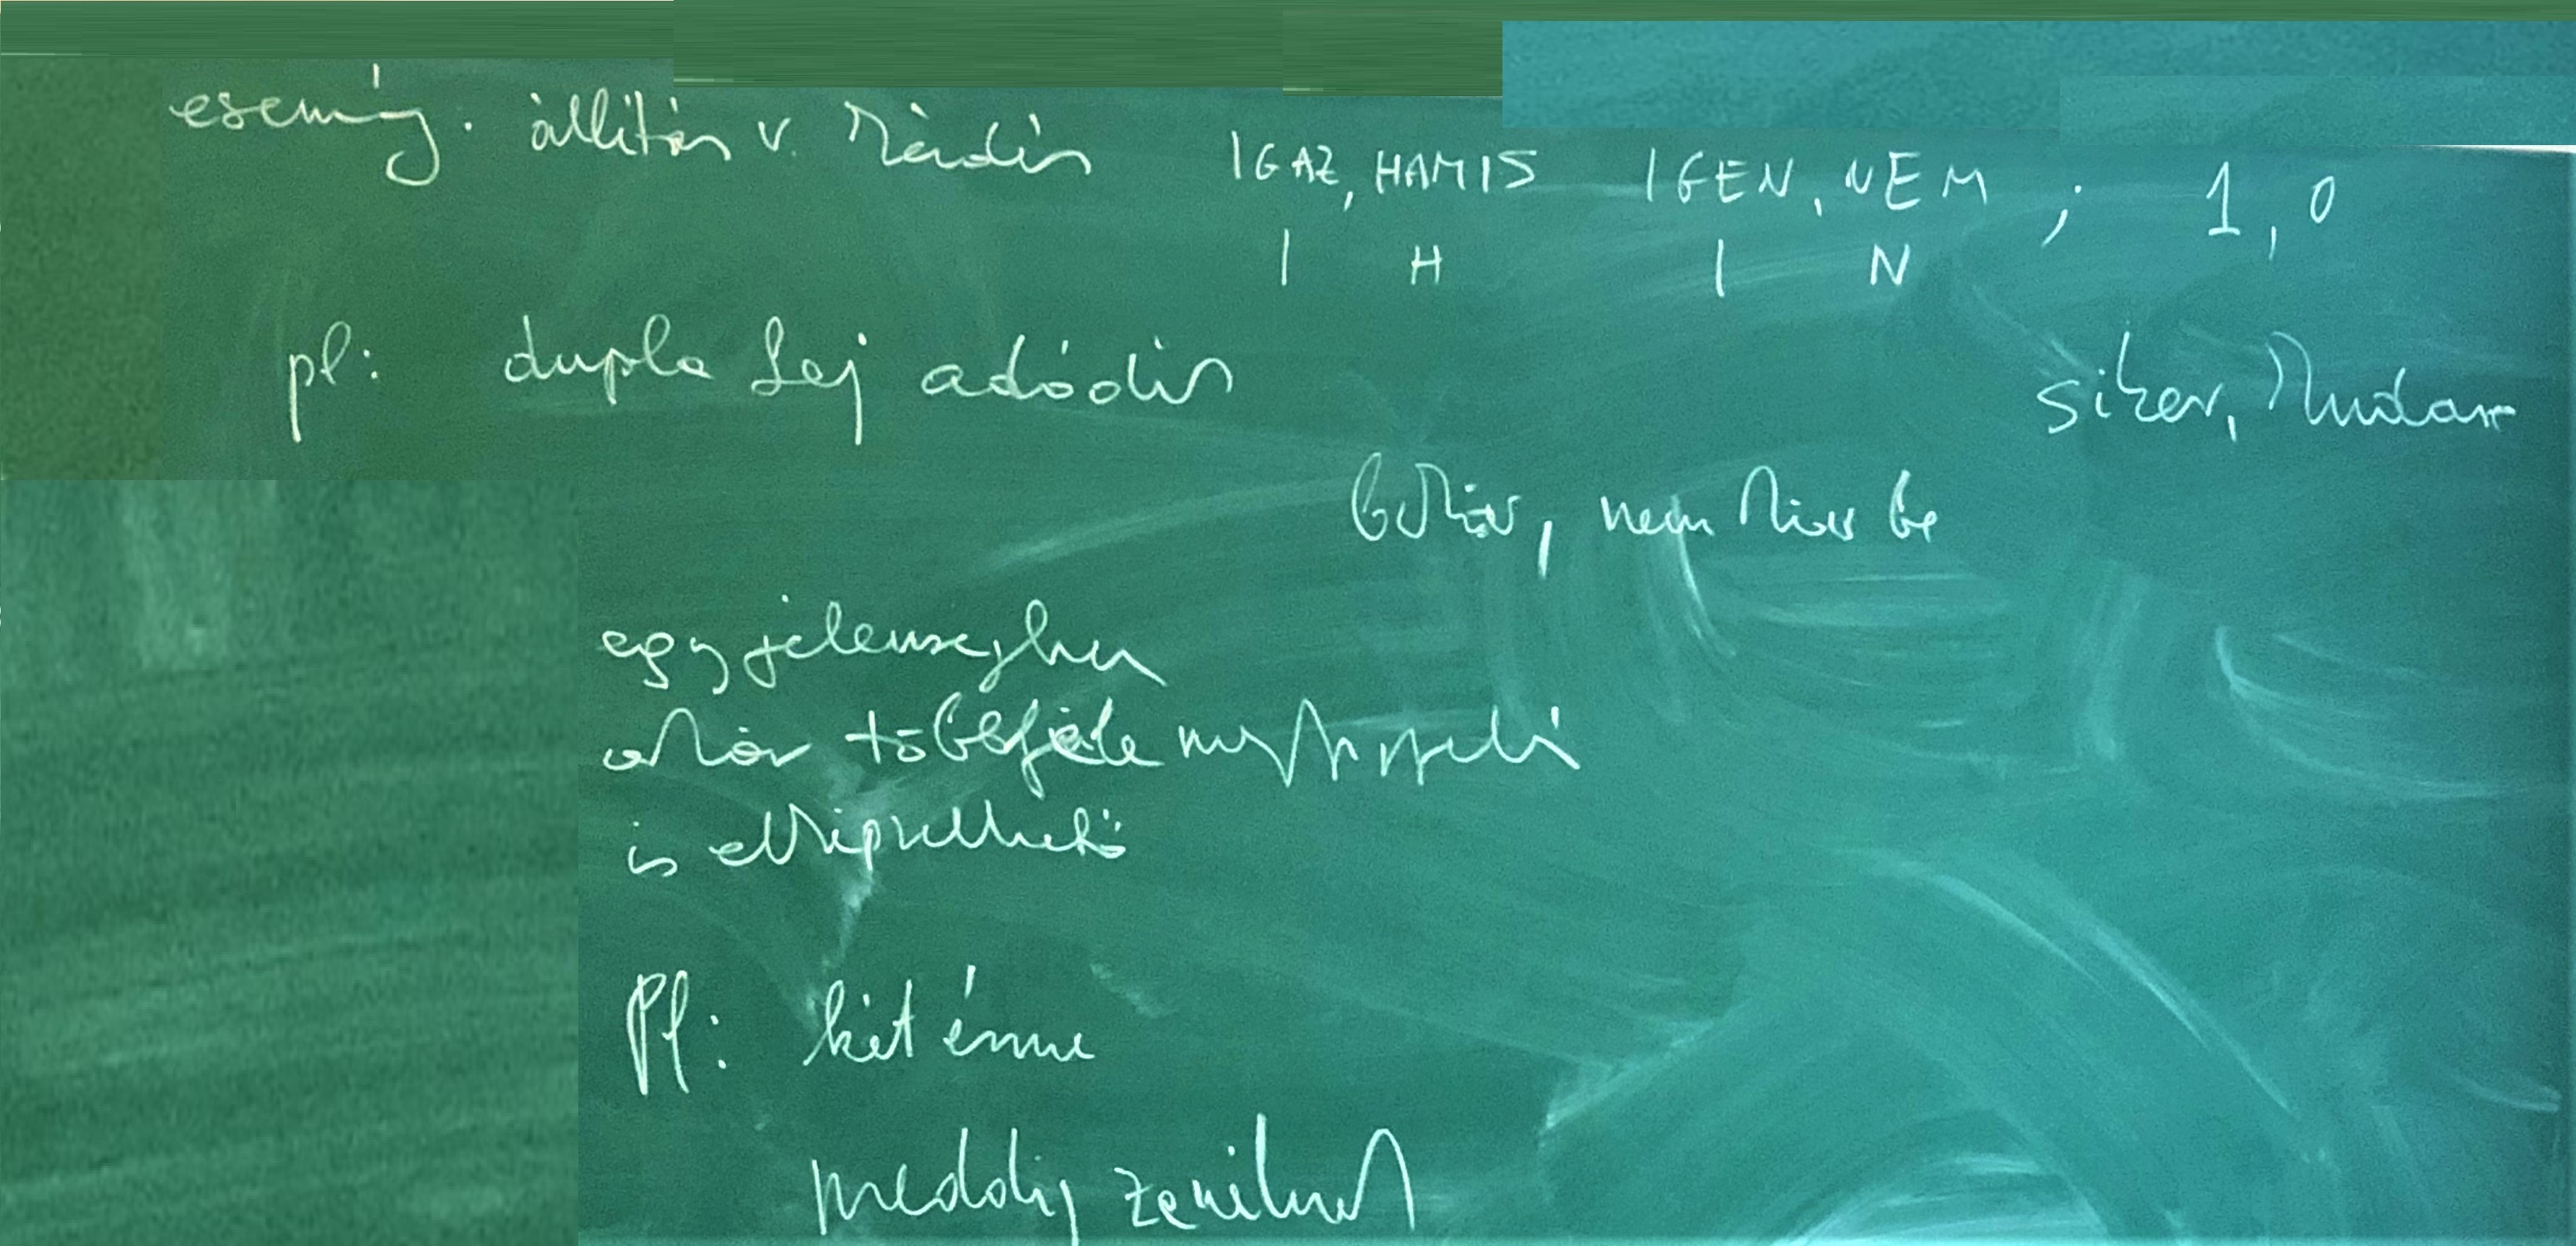 esemény. állítás v. kérdés IGAZ, HAMIS IGEN, NEM ; 1, 0
I H I N
pl: dupla fej adódik
siker, kudarc
beköv, nem köv be
egy jelenségben
akár többféle megfigyelés
is elképzelhető
Pl: két érme
meddig zenélnek